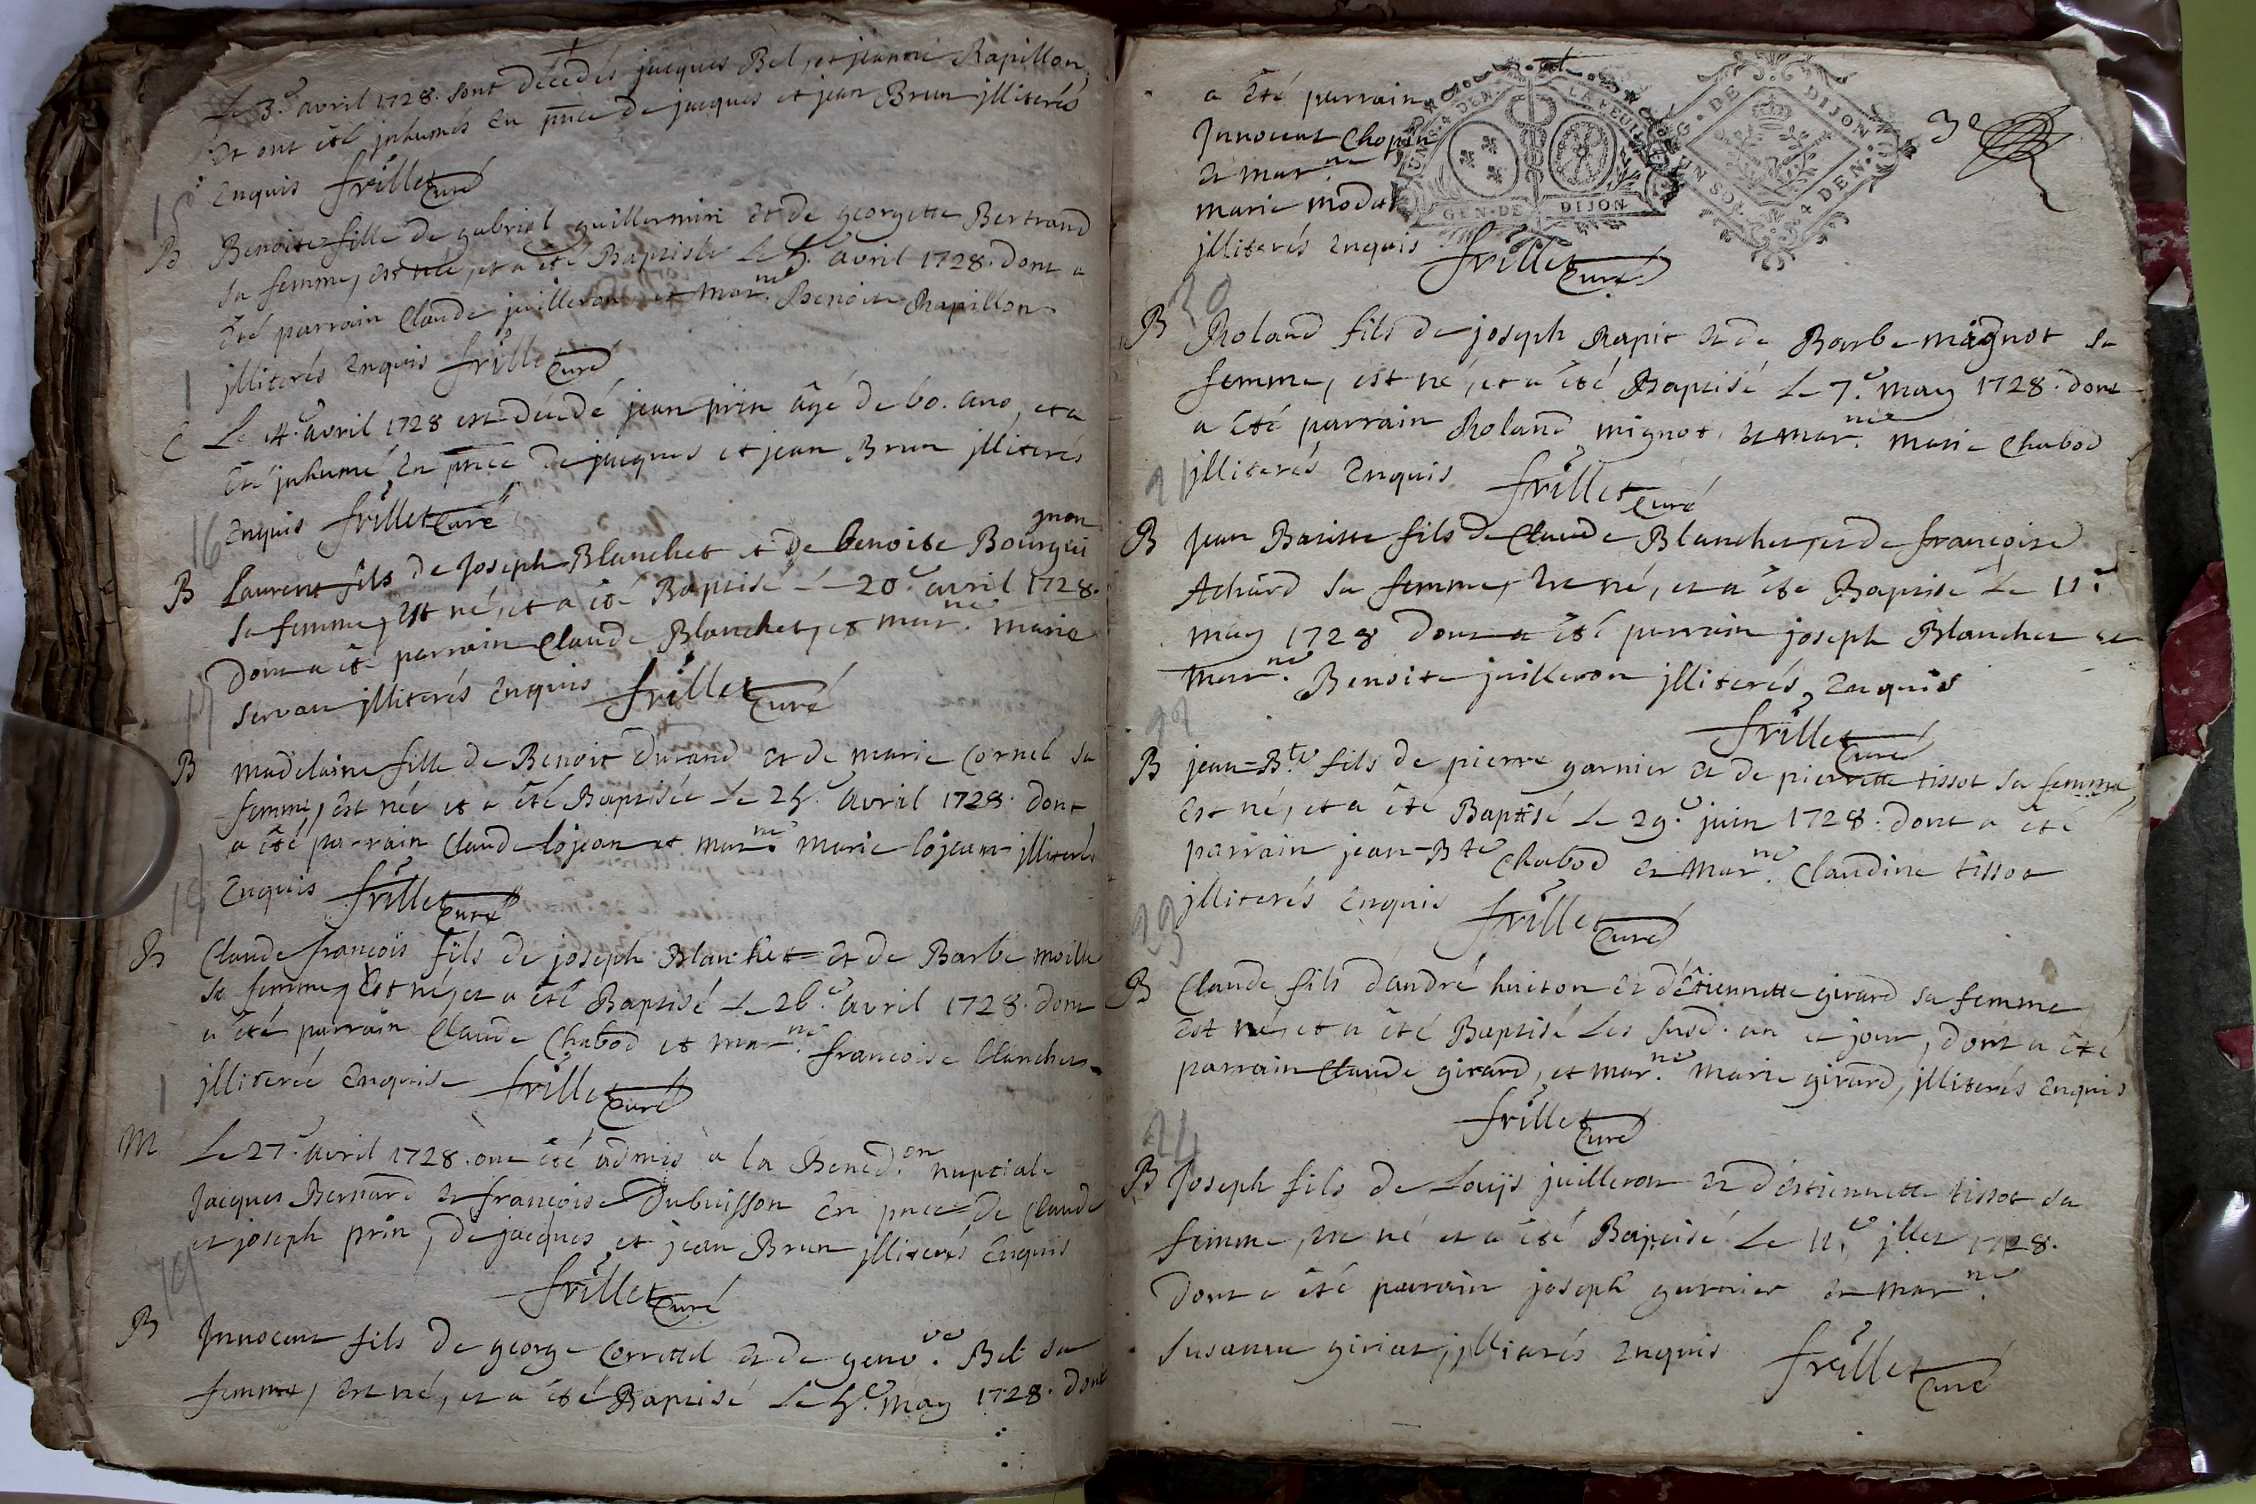 Le 3.e avril 1728. sont décédés jacques Bel, et jeanne Rapillon
et ont été inhumés en pnce de jacques et jean Brun jlliterés
Enquis frillet Curé
15
B Benoite fille de gabriel guillermin et de georgette Bertrand
sa femme, est née, et a été Baptisée Le 5.e avril 1728. dont a
été parrain Claude juilleron et mar.ne Benoite Rapillon
jlliterés Enquis frillet Curé
1
C Le 14.e avril 1728 est décédé jean prin âgé de 60. ans, et a
Eté jnhumé En pnce de jacques et jean Brun jlliterés
Enquis frillet Curé
16
gnon
B Laurent fils de Joseph Blanchet et de benoite Bourgui
sa femme, Est né, et a été Baptisé le 20.e avril 1728.
Dont a été parrain Claude Blanchet, et mar.ne marie
servan jlliterés Enquis frillet Curé
17
B madelaine fille de Benoit Durand et de marie Cornel sa
femme, est née et a été Baptisée Le 25.e avril 1728. Dont
a été parrain Claude lojean et mar.ne marie lojean jlliterés
Enquis frillet Curé
18
B Claude françois fils de joseph Blanchet et de Barbe moille
sa femme, Est né, et a été Baptisé Le 26.e avril 1728. dont
a été parrain Claude Chabod et mar.ne francoise blanchet
jlliterée Enquise frillet Curé
1
M Le 27.e avril 1728. ont été admis à la Bened.on nuptiale
Jacques Bernard et françoise Dubuisson En pnce de Claude
et joseph prin, de jacques et jean Brun jlliterés Enquis
frillet Curé
19
B Jnnocent fils de george Corretel et de genv.ve Bel sa
femme, est né, et a été Baptisé Le 5.e May 1728. dont
a été parrain
Jnnocent Chopin
et mar.ne
marie modas
jlliterés Enquis frillet Curé
GEN·DE DIJON
G·DE DIJON
UN SOL 4 DEN·
3e
20
B Roland fils de joseph Rapit et de Barbe mignot sa
femme, est né, et a été Baptisé Le 7.e may 1728. Dont
a été parrain Roland mignot, et mar.ne marie Chabod
jlliterés Enquis frillet Curé
21
B Jean Batiste fils de Claude Blanchet, et de francoise
Achard sa femme, est né, et a été Baptisé Le 11.e
may 1728 dont a été parrain joseph Blanchet et
mar.ne Benoite juilleron jlliterés, Enquis
frillet Curé
22
B jean-B.te fils de pierre garnier et de pierrette tissot sa femme
Est né, et a été Baptisé Le 29.e juin 1728. dont a été
parrain jean-Bte Chabod et mar.ne Claudine tissot
jlliterés Enquis frillet Curé
23
B Claude fils dandré huiton et détiennette girard sa femme
Est né, et a été Baptisé Les susd. an et jour, dont a été
parrain Claude girard, et mar.ne marie girard, jlliterés Enquis
frillet Curé
24
B Joseph fils de Louijs juilleron et d'éstiennette tissot sa
femme, est né et a été Baptisé Le 11.e jllet 1728.
Dont a été parrain joseph garnier et mar.ne
Susanne giriat, jlliterés Enquis frillet Curé